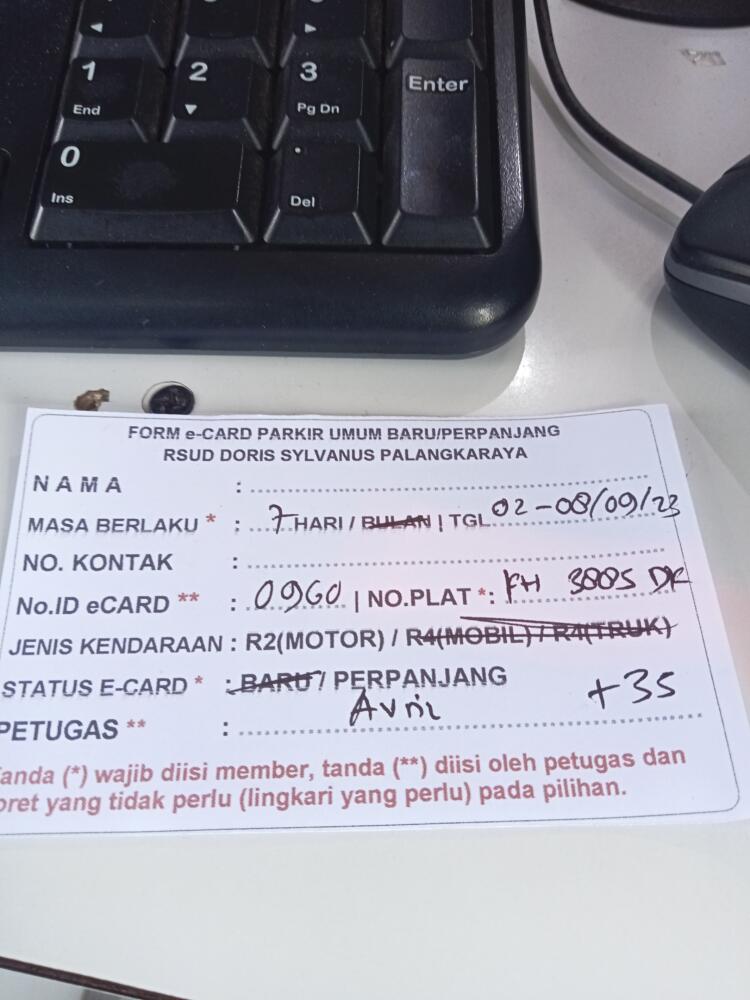 1 2 3 Enter
End Pg Dn
0 .
Ins Del
FORM e-CARD PARKIR UMUM BARU/PERPANJANG
RSUD DORIS SYLVANUS PALANGKARAYA
NAMA :
MASA BERLAKU * : 7 HARI / BULAN | TGL 02-08/09/23
NO. KONTAK :
No.ID eCARD ** : 0960 | NO.PLAT *: KH 3885 DK
JENIS KENDARAAN : R2(MOTOR) / R4(MOBIL) / R4(TRUK)
STATUS E-CARD * : BARU / PERPANJANG +35
PETUGAS ** : Avril
anda (*) wajib diisi member, tanda (**) diisi oleh petugas dan
oret yang tidak perlu (lingkari yang perlu) pada pilihan.